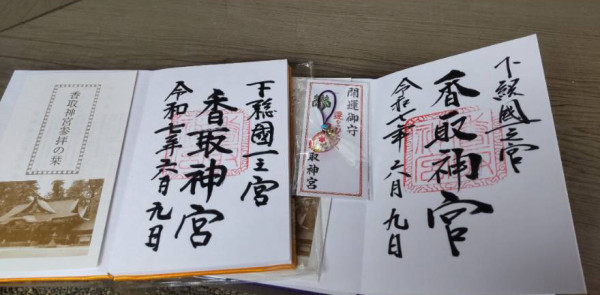 香取神宮参拝の栞
下総國一宮
香取神宮
令和七年六月九日
開運御守
取神宮
下総國一宮
香取神宮
令和七年六月九日